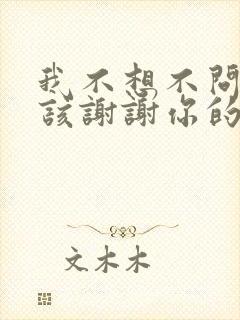 我不想不問
該謝謝你的
文木木